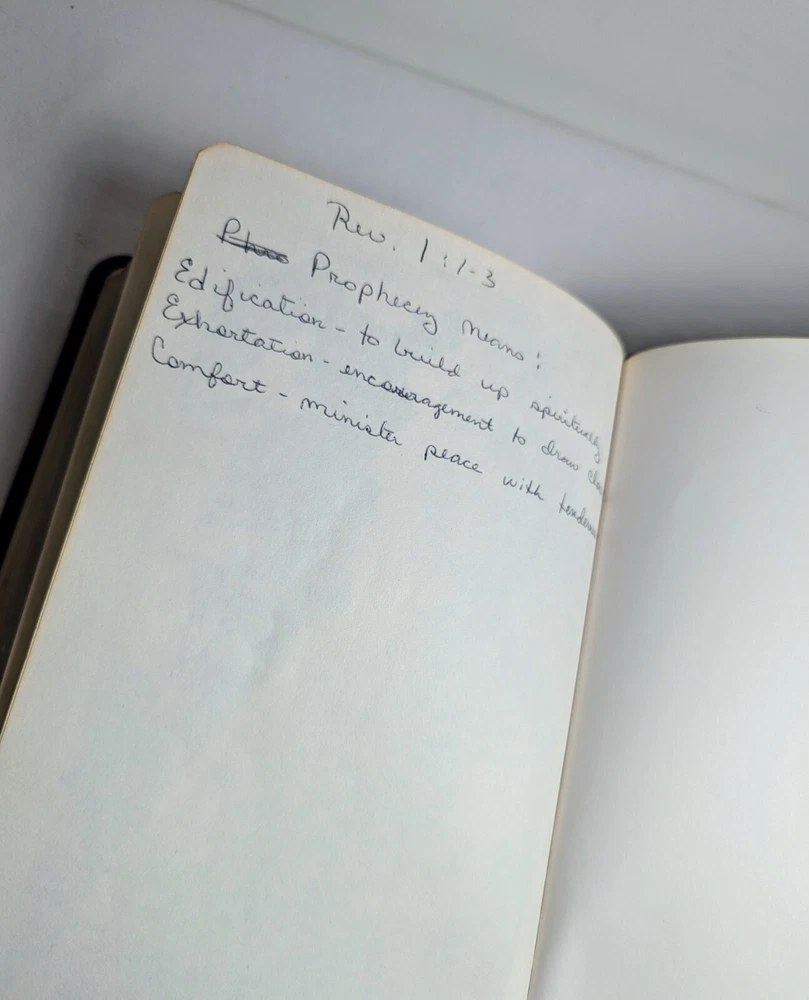 Rev. 1:1-3
Prophecy means:
Edification - to build up spiritually
Exhortation - encouragement to draw
Comfort - minister peace with